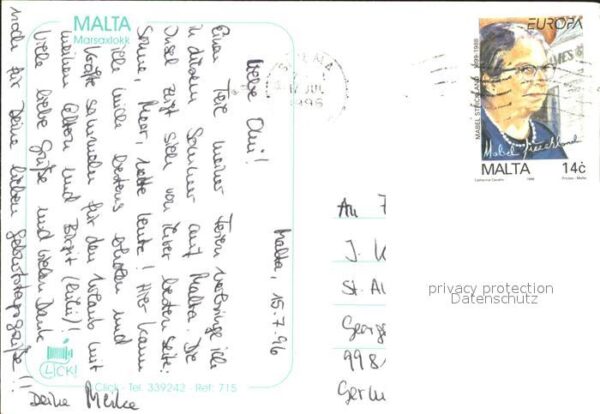 MALTA
Marsaxlokk
Malta, 15.7.96
Liebe Omi!
Einen Teil meiner Ferien verbringe ich
in diesem Sommer auf Malta. Die
Insel zeigt sich von ihrer besten Seite:
Sonne, Meer, nette Leute! Hier kann
ich mich bestens erholen und
Kräfte sammeln für den Urlaub mit
meinen Eltern und Birgit
Viele liebe Grüße und vielen Dank
noch für Deine lieben Geburtstagsgrüße!!
Deine Meike
CLICK!
Click - Tel. 339242 - Ref: 715
JUL
1996
EUROPA
MABEL STRICKLAND 1899-1988
Mabel Strickland
MALTA 14c
An
J. K
St. Al
George
998
Germ
privacy protection
Datenschutz